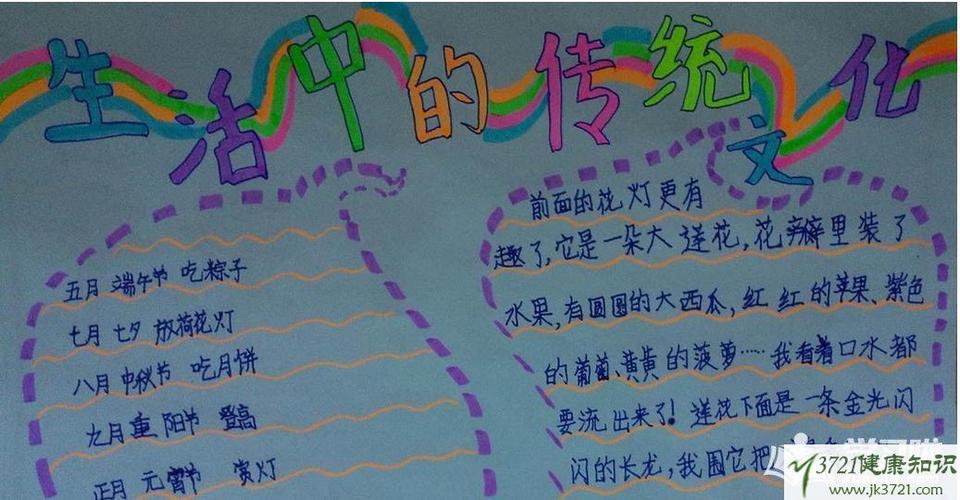 生活中的传统文化
五月 端午节 吃粽子
七月 七夕 放荷花灯
八月 中秋节 吃月饼
九月 重阳节 登高
正月 元宵节 赏灯
前面的花灯更有
趣了,它是一朵大莲花,花瓣里装了
水果,有圆圆的大西瓜,红红的苹果、紫色
的葡萄、黄黄的菠萝……我看着口水都
要流出来了!莲花下面是一条金光闪
闪的长龙,我围它把
3721健康知识
www.jk3721.com